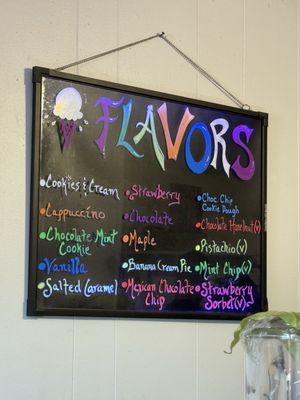 FLAVORS
Cookies & Cream
Cappuccino
Chocolate Mint
Cookie
Vanilla
Salted Caramel
Strawberry
Chocolate
Maple
Banana Cream Pie
Mexican Chocolate
Chip
Choc Chip
Cookie Dough
Chocolate Hazelnut (v)
Pistachio (v)
Mint Chip (v)
Strawberry
Sorbet (v)